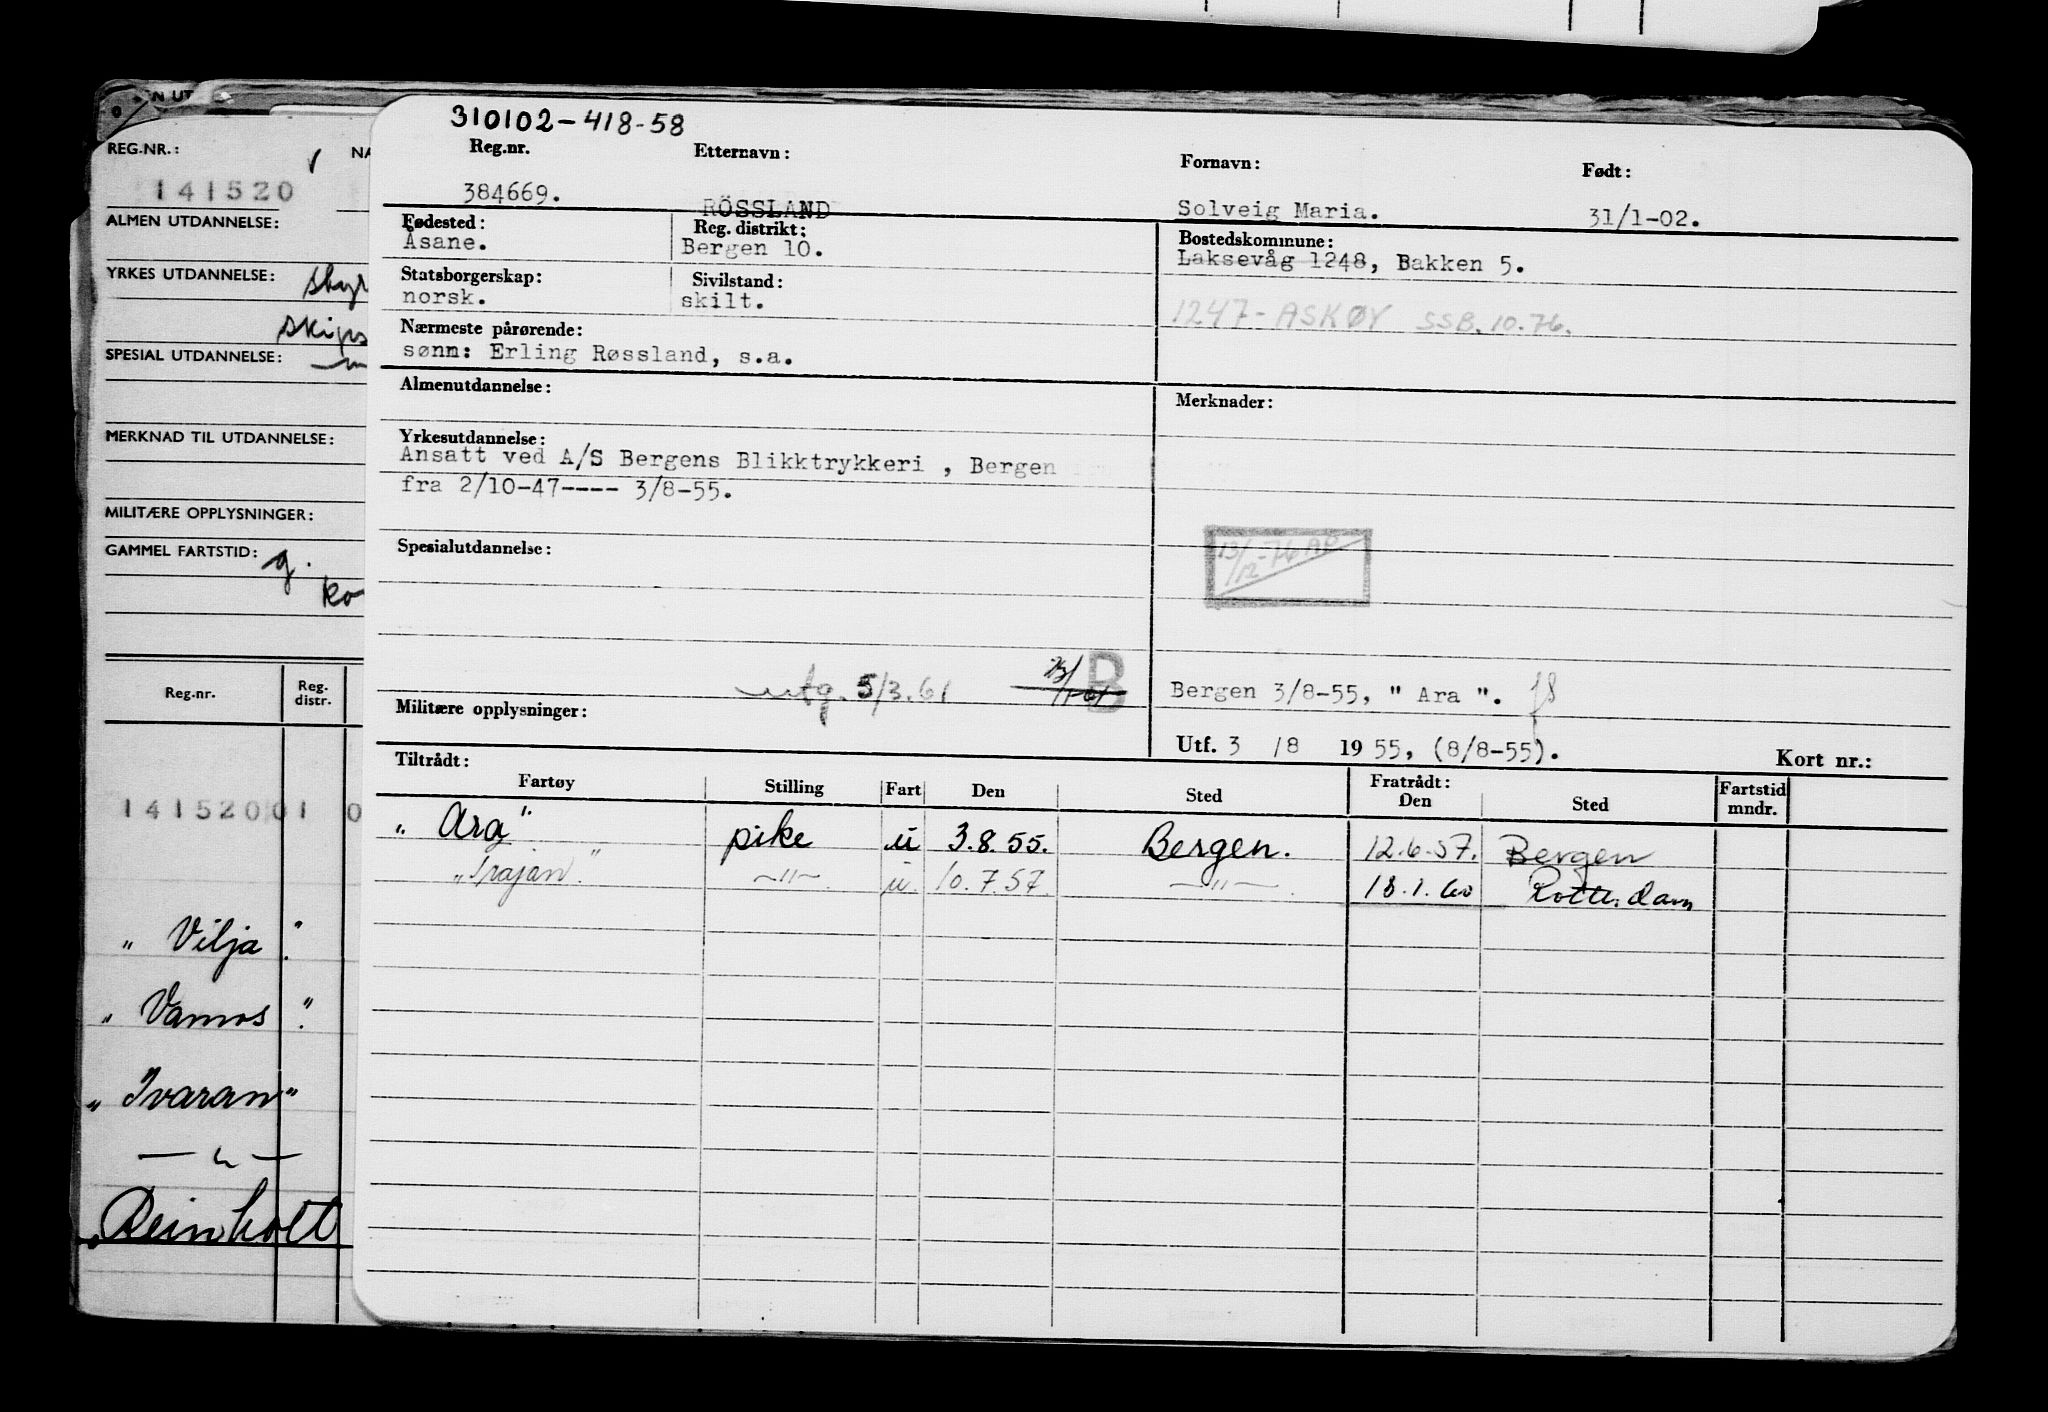 EN UT
REG.NR.:
NA
141520
ALMEN UTDANNELSE:
YRKES UTDANNELSE:
SPESIAL UTDANNELSE:
MERKNAD TIL UTDANNELSE:
MILITÆRE OPPLYSNINGER:
GAMMEL FARTSTID: g.
ko
Reg.nr. Reg. distr.
14152001 0
" Vilja "
" Vamos "
" Ivaran "
— " —
" Reinholt
310102-418-58
Reg.nr. Etternavn: Fornavn: Født:
384669. RÖSSLAND Solveig Maria. 31/1-02.
Fødested: Reg. distrikt: Bostedskommune:
Åsane. Bergen 10. Laksevåg 1248, Bakken 5.
Statsborgerskap: Sivilstand:
norsk. skilt. 1247-ASKØY SSB. 10.76.
Nærmeste pårørende:
sønn: Erling Røssland, s.a.
Almenutdannelse: Merknader:
Yrkesutdannelse:
Ansatt ved A/S Bergens Blikktrykkeri , Bergen
fra 2/10-47---- 3/8-55.
Spesialutdannelse: 13/12-76 AP
utg. 5/3.61 B
Bergen 3/8-55, " Ara ".
Militære opplysninger:
Utf. 3 /8 1955, (8/8-55). Kort nr.:
Tiltrådt: Fratrådt:
Fartøy Stilling Fart Den Sted Den Sted Fartstid mndr.
" Ara " pike u 3.8.55. Bergen. 12.6.57. Bergen
" Trajan " —"— u. 10.7.57. —"— 18.1.60 Rotterdam